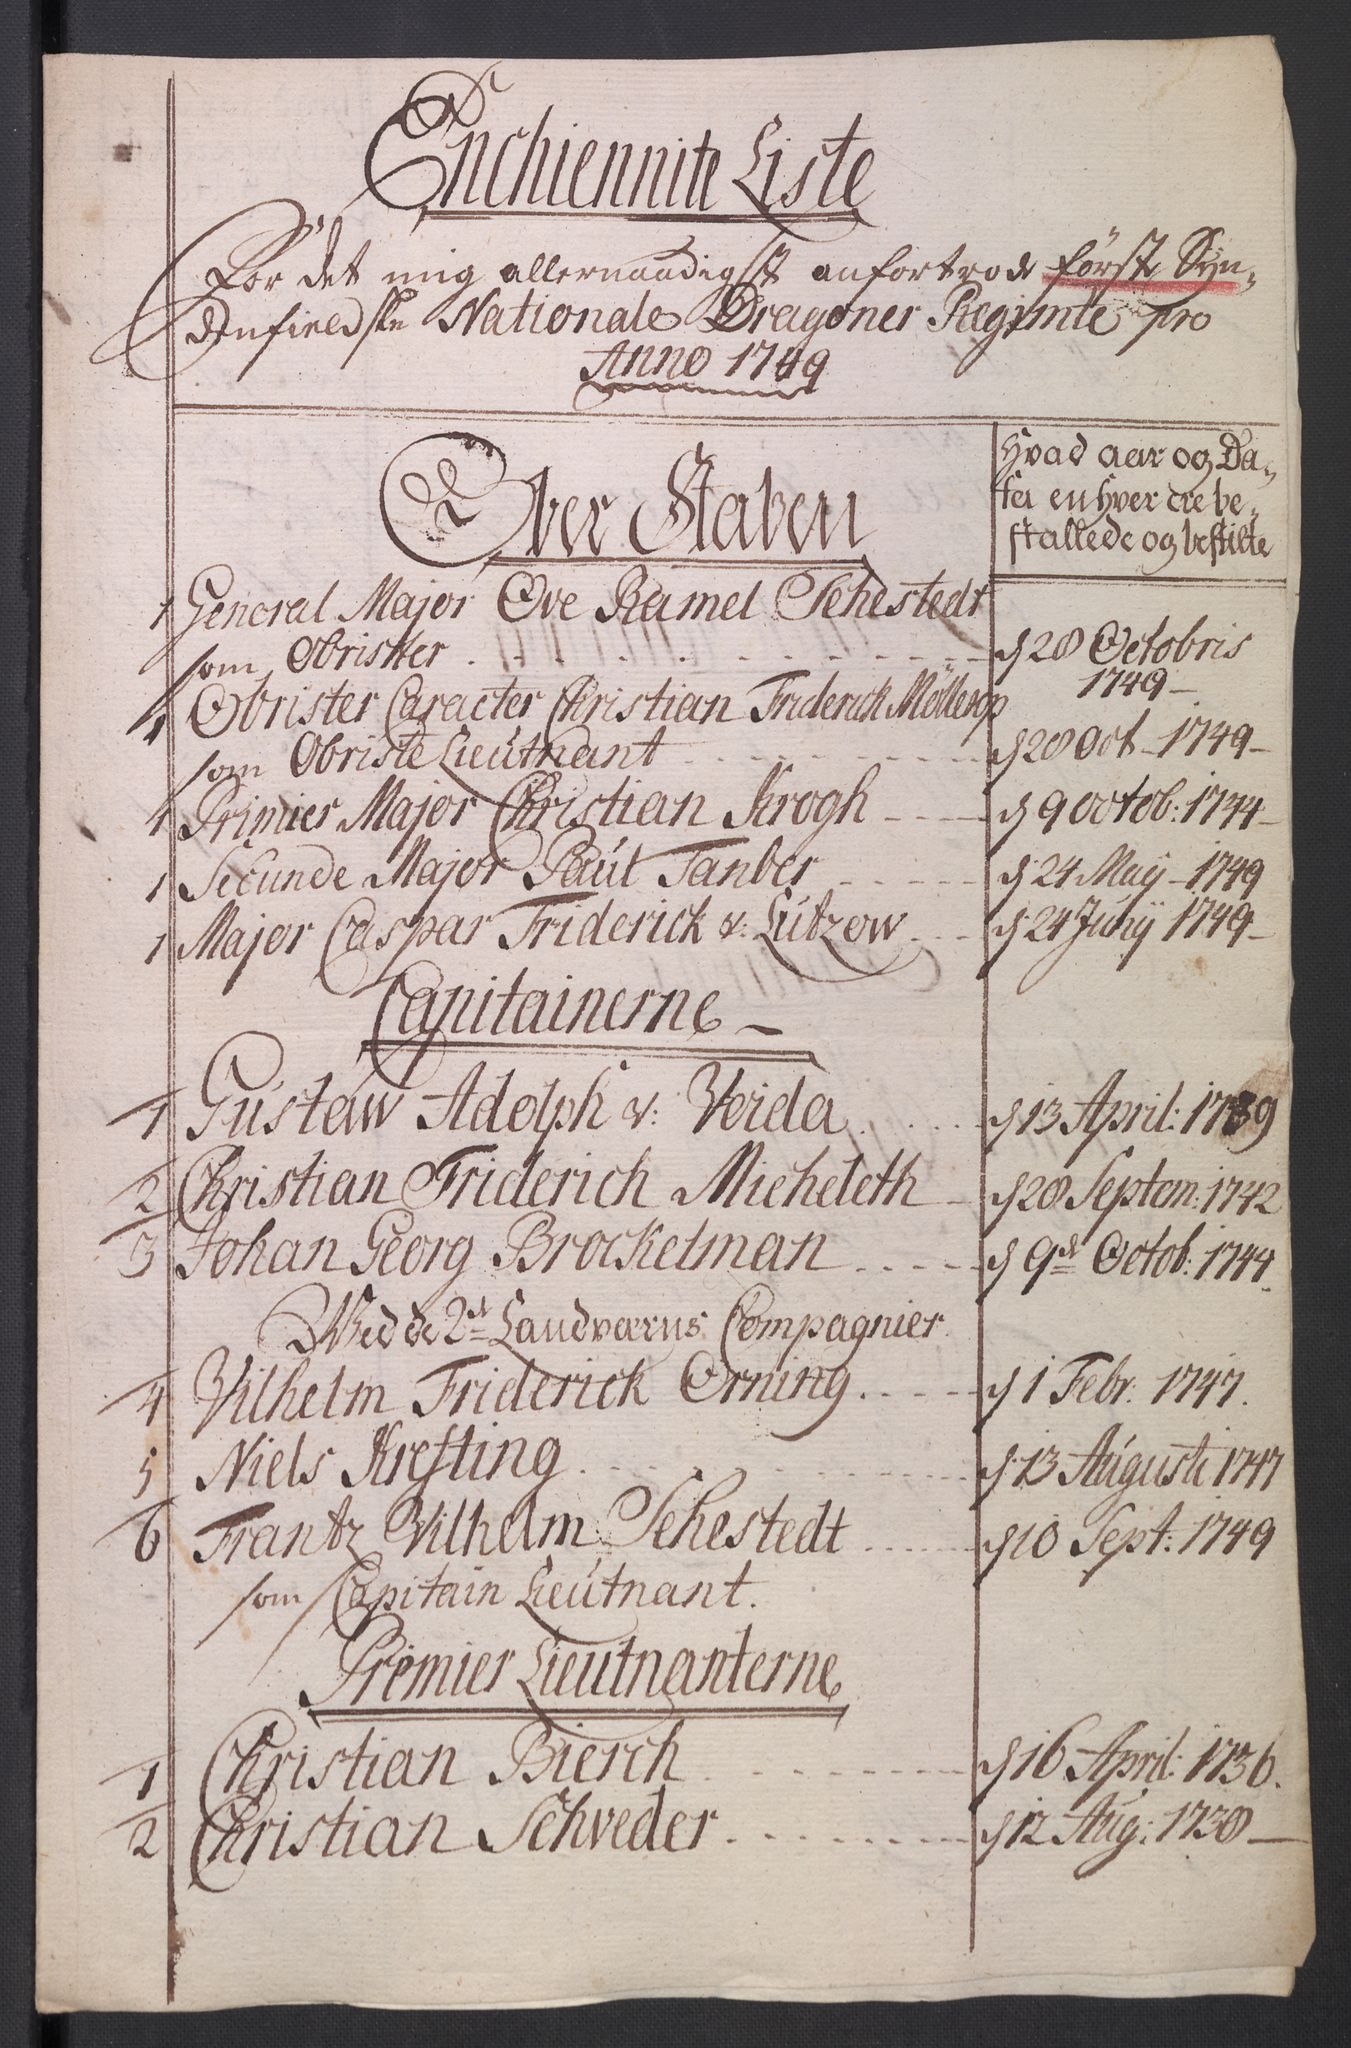 Enchiennite Liste
For det mig allernaadigst anfortrode först Syn-
denfieldske Nationale Dragoner Regimte pro
Anno 1749
Ober Staben
Hvad aar og Da-
to en hver ere be-
stallede og bestilte
1 General Major Ove Ramel Sehestedt
som Obrister d 28 Octobris
1749
1 Obrister Caracter Christian Friderich Möllerop
som Obriste Lieutnant d 28 Oct 1749
1 Primier Major Christian Krogh d 9 Octob: 1744
1 Secunde Major Paul Tanber d 24 Maij 1749
1 Major Caspar Friderick v: Lützow d 24 Junij 1749
Capitainerne
1 Gustaw Adolph v: Verda d 13 April: 1739
2 Christian Friderich Micheleth d 28 Septem: 1742
3 Johan Georg Brockelman d 9d Octob: 1744
Ved de 2d Landværns Compagnier
4 Vilhelm Friderick Orning d 1 Febr: 1747
5 Niels Krefting d 13 Augusti 1747
6 Frantz Vilhelm Sehestedt d 10 Sept: 1749
som Capitain Lieutnant.
Premier Lieutnanterne
1 Christian Bierch d 16 April: 1736
2 Christian Schveder d 12 Aug: 1738